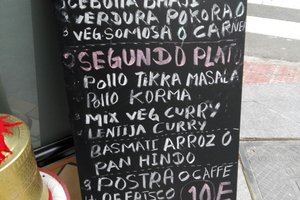 CEBOLLA BHAJI
VERDURA POKORA O
VEG SOMOSA O CARNE
SEGUNDO PLAT
POLLO TIKKA MASALA
POLLO KORMA
MIX VEG CURRY
LENTIJA CURRY
BASMATE ARROZ O
PAN HINDO
POSTRA O CAFFE
10E